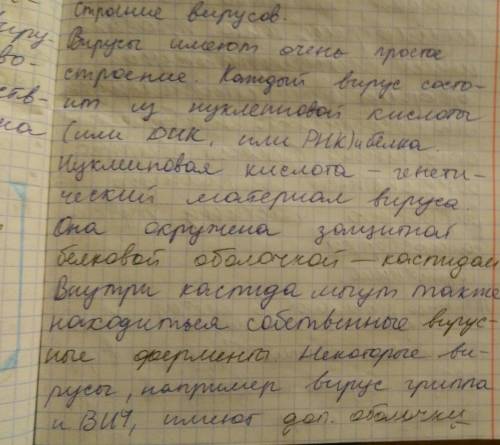 Строние вирусов.
Вирусы имеют очень простое
строение. Каждый вирус состо-
ит из нуклеиновой кислоты
(или ДНК, или РНК) и белка.
Нуклеиновая кислота – генети-
ческий материал вируса.
Она окружена защитной
белковой оболочкой – каспидом
Внутри каспида могут также
находиться собственные вирус-
ные ферменты Некоторые ви-
русы, например вирус гриппа
и ВИЧ, имеют доп. оболочку